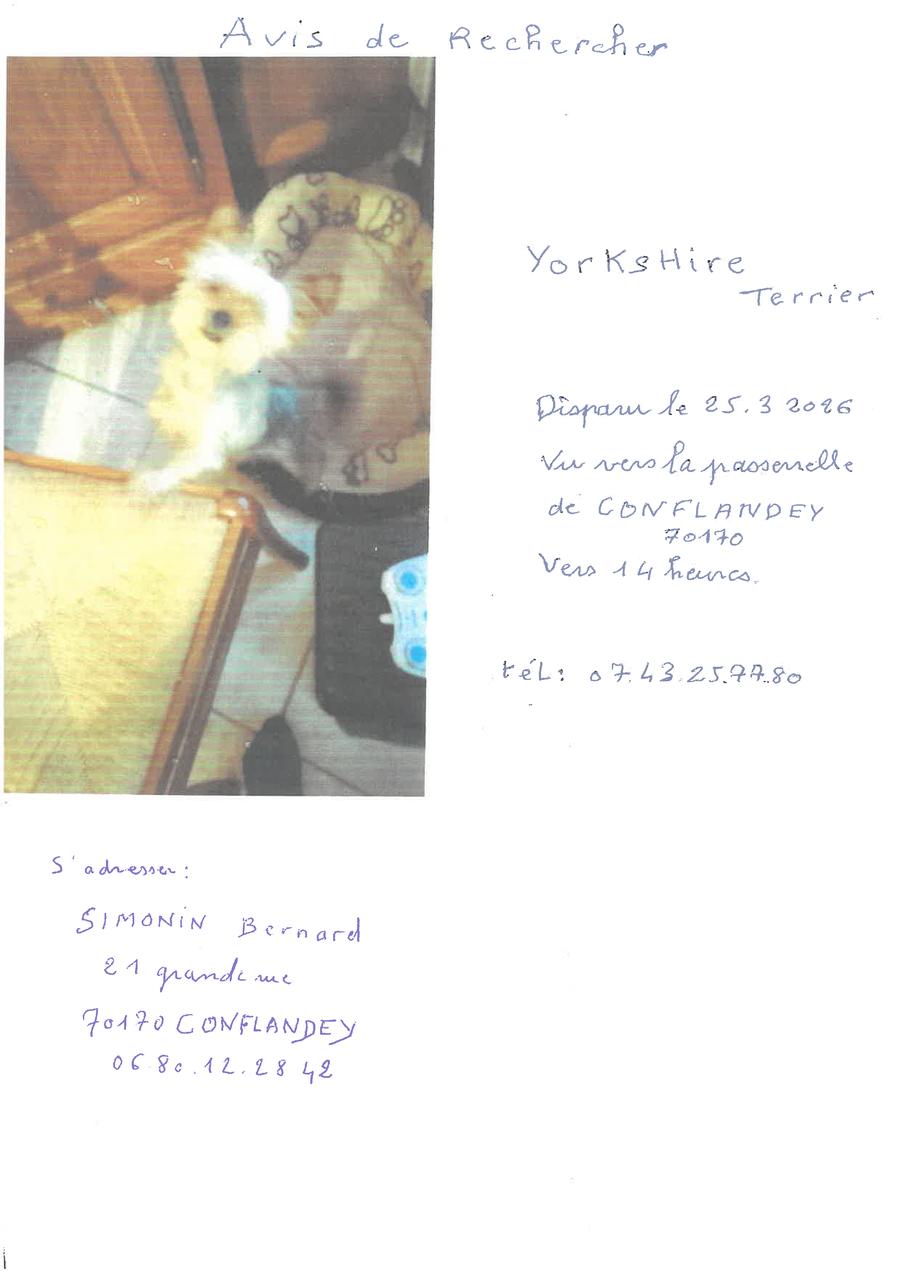 Avis de Rechercher
YorKsHire
Terrier
Disparu le 25.3 2026
Vu vers la passerelle
de CONFLANDEY
70170
Vers 14 heures.
téL: 07.43.25.77.80
S'adresser:
SIMONIN Bernard
21 grande rue
70170 CONFLANDEY
06.80.12.28 42